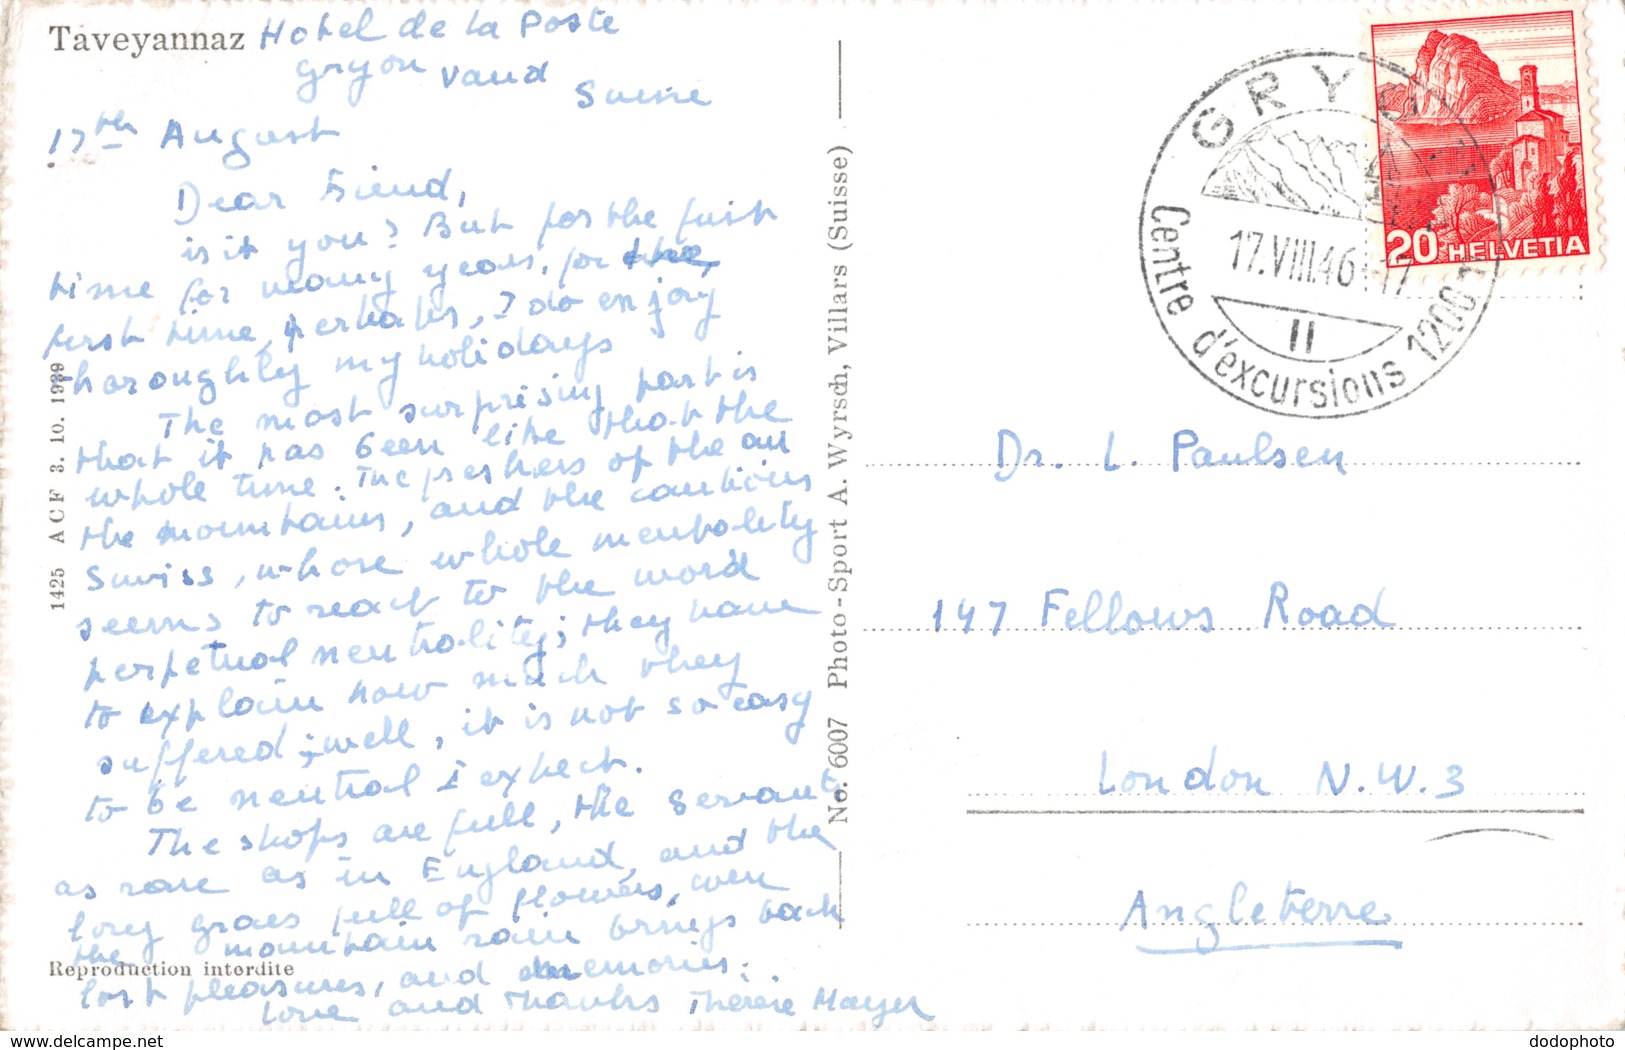 Taveyannaz Hotel de la Poste
Gryon Vaud
Suisse
17th August
Dear Friend,
is it you? But for the first
time for many years, for the
first time, perhaps, I do enjoy
thoroughly my holidays
The most surprising part is
that it has been like that the
whole time. The freshness of the air
the mountains, and the cautious
Swiss, whose whole mentality
seems to react to the word
perpetual neutrality; they have
to explain how much they
suffered; well, it is not so easy
to be neutral I expect.
The shops are full, the servants
as rare as in England, and the
long grass full of flowers, even
the mountain rain brings back
lost pleasures, and memories.
Love and thanks Thérèse Mayer
Reproduction interdite
1425 ACF 3. 10. 1939
No. 6007 Photo-Sport A. Wyrsch, Villars (Suisse)
GRYON
17.VIII.46.-17
II
Centre d'excursions 1200m
20 HELVETIA
Dr. L. Paulsen
147 Fellows Road
London N.W.3
Angleterre
www.delcampe.net
dodophoto